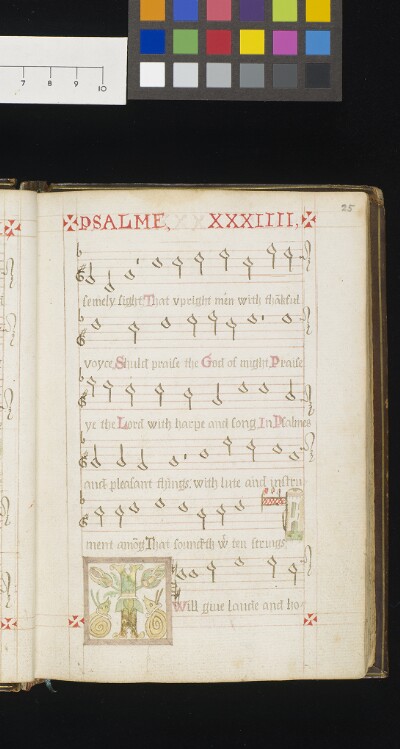 7 8 9 10
25
PSALME, XXXIIII,
semely sight, That vpright men with thākful
voyce, Shuld praise the God of might, Praise
ye the Lord with harpe and song, In Psalmes
and pleasant things, with lute and instru
ment amōg, That soundeth wt ten strings,
Will giue laude and ho-